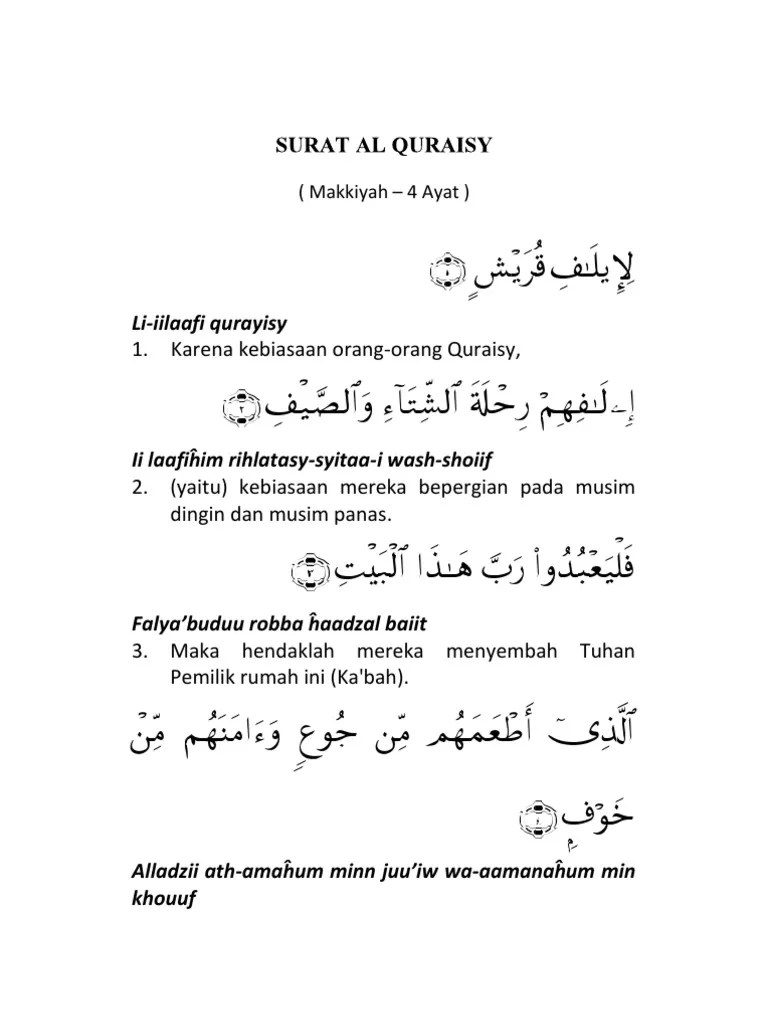 SURAT AL QURAISY
( Makkiyah – 4 Ayat )
لِإِيلَـٰفِ قُرَيْشٍ ﴿١﴾
Li-iilaafi qurayisy
1. Karena kebiasaan orang-orang Quraisy,
إِۦلَـٰفِهِمْ رِحْلَةَ ٱلشِّتَآءِ وَٱلصَّيْفِ ﴿٢﴾
Ii laafiĥim rihlatasy-syitaa-i wash-shoiif
2. (yaitu) kebiasaan mereka bepergian pada musim
dingin dan musim panas.
فَلْيَعْبُدُوا۟ رَبَّ هَـٰذَا ٱلْبَيْتِ ﴿٣﴾
Falya’buduu robba ĥaadzal baiit
3. Maka hendaklah mereka menyembah Tuhan
Pemilik rumah ini (Ka'bah).
ٱلَّذِىٓ أَطْعَمَهُم مِّن جُوعٍ وَءَامَنَهُم مِّنْ
خَوْفٍۭ ﴿٤﴾
Alladzii ath-amaĥum minn juu’iw wa-aamanaĥum min
khouuf